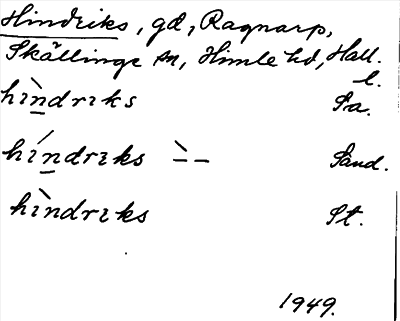 Hindriks, gd, Ragnarp,
Skällinge sn, Himle hd, Hall.
l.
hìndrıks Sa.
híndrıks –̀ – Sand.
hìndrıks St.
1949.